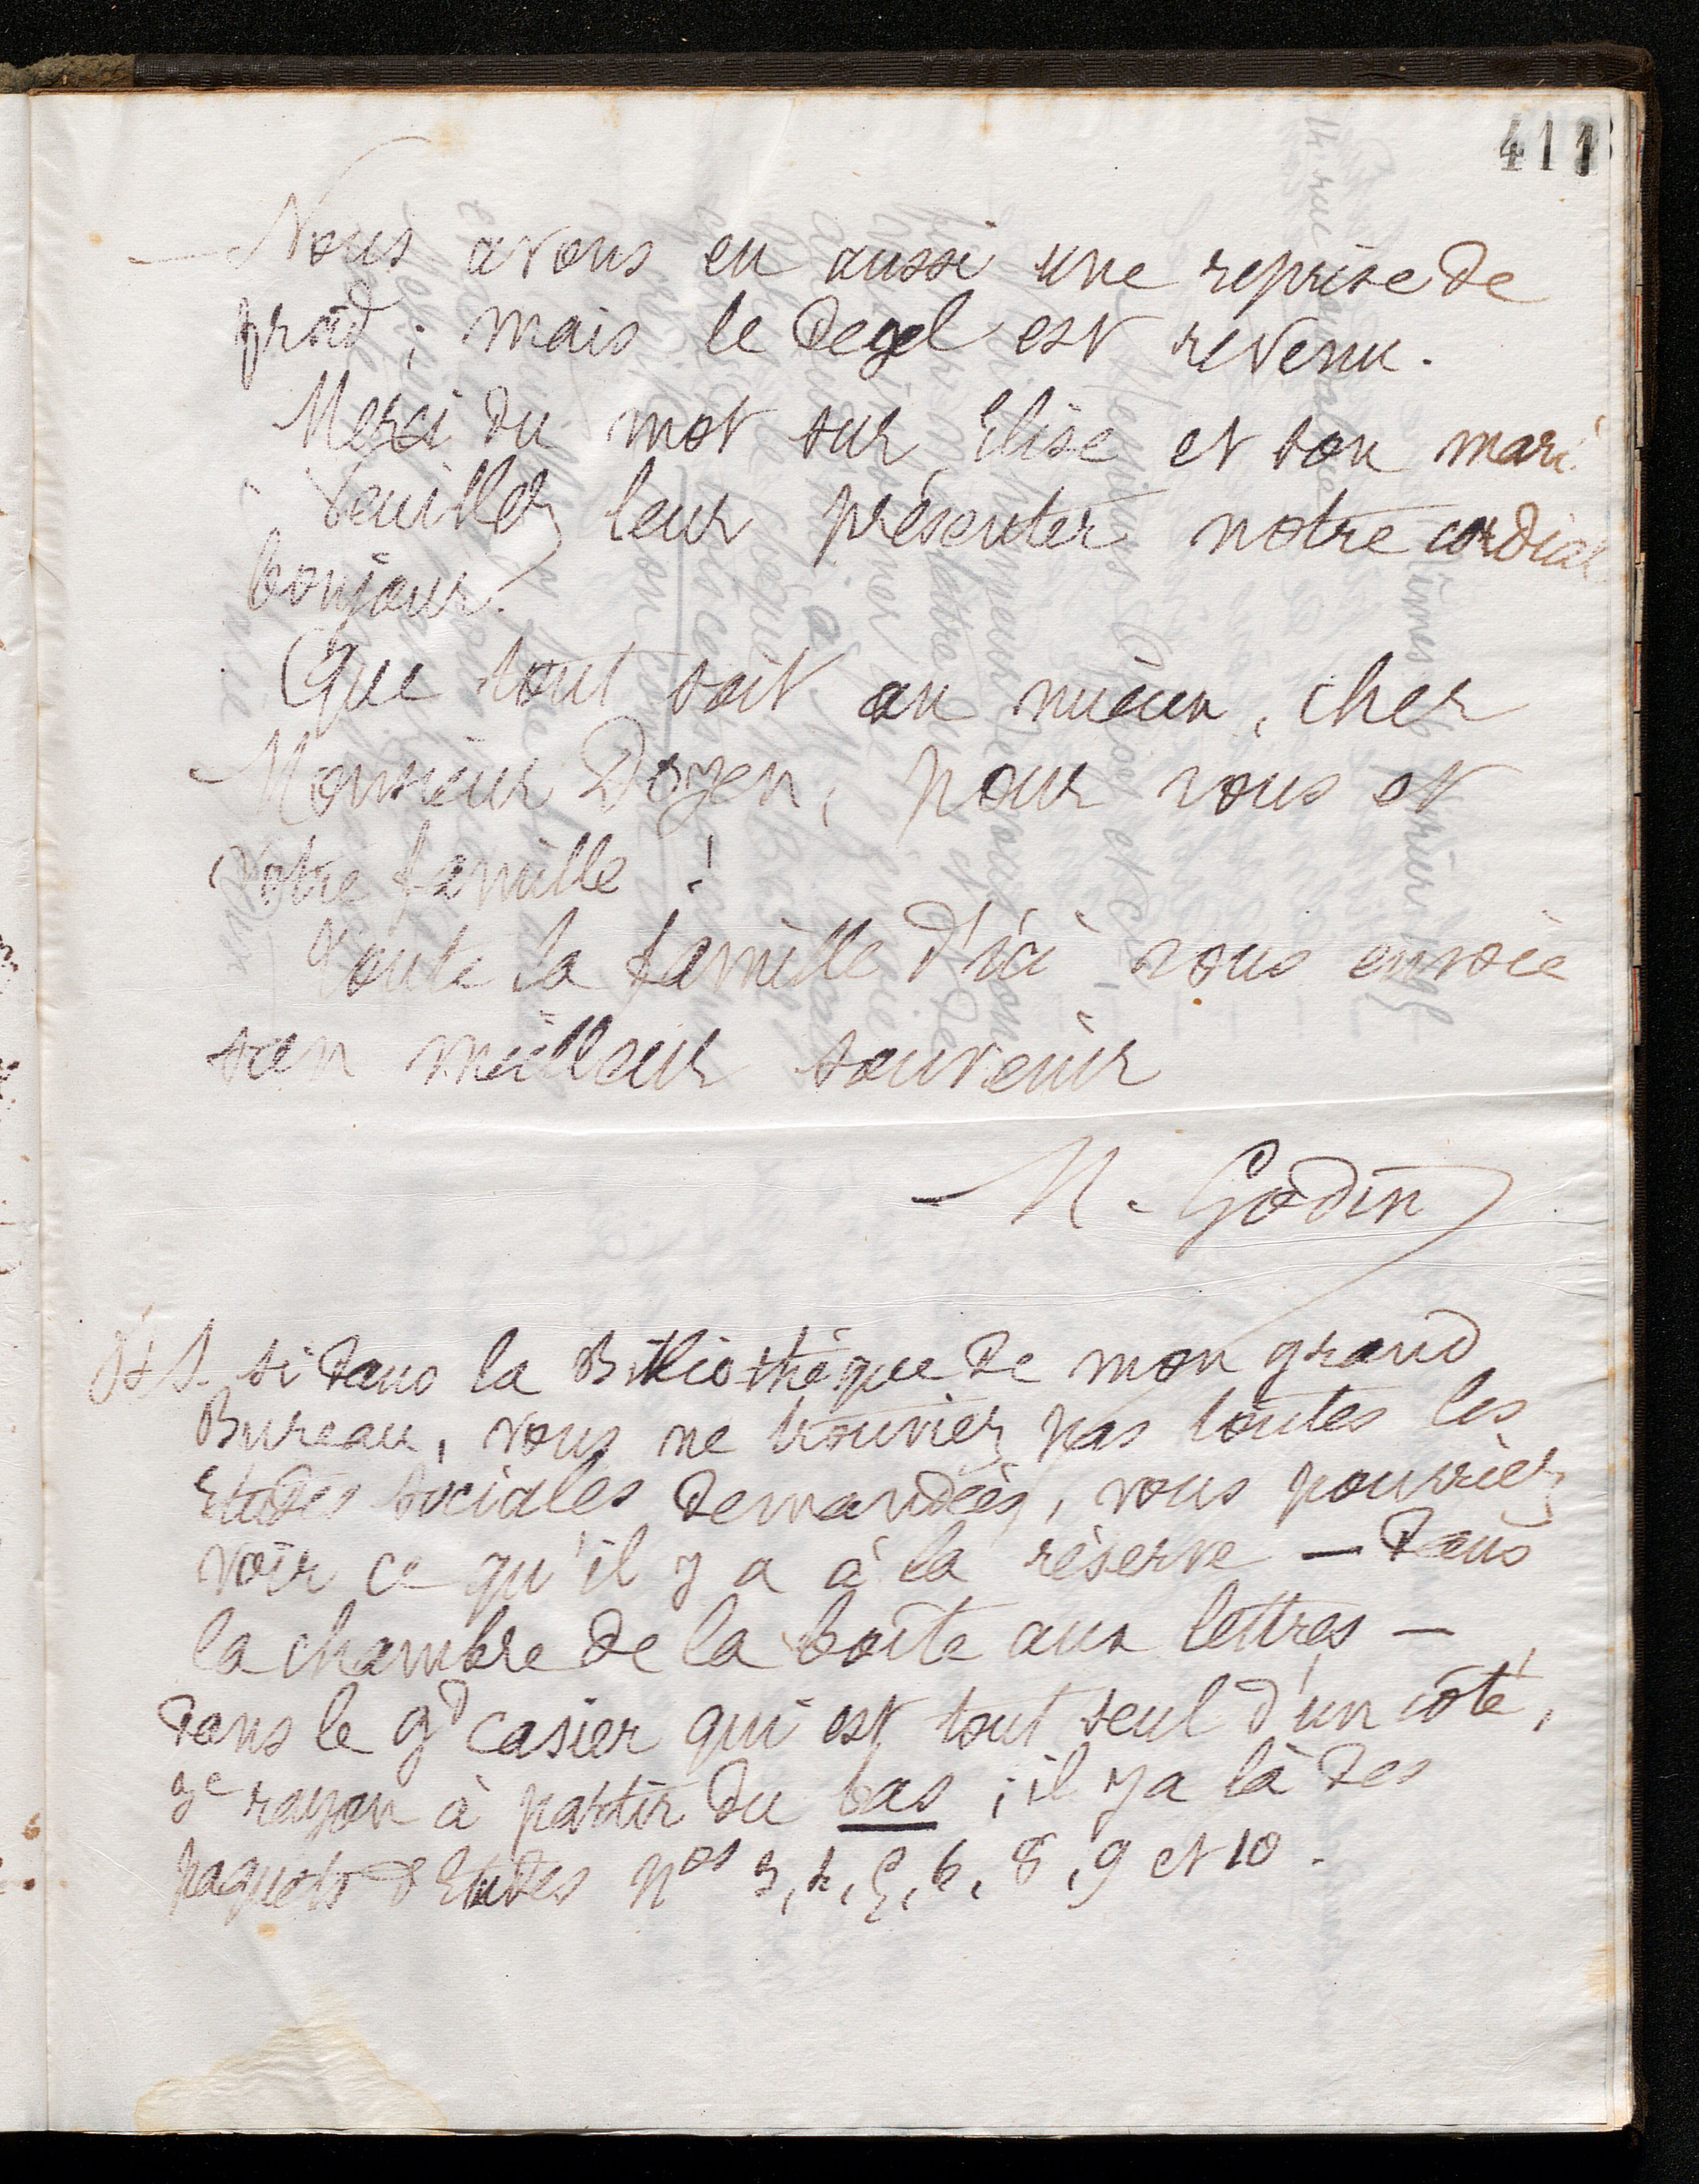 411
Nous avons eu aussi une reprise de
froid ; mais le degel est revenu.
Merci du mot sur Elise et son mari.
Veuillez leur présenter notre cordial
bonjour.
Que tout soit au mieux, cher
Monsieur Doyen, pour vous et
votre famille !
Toute la famille d'ici vous envoie
son meilleur souvenir
M. Godin
si dans la Bibliothèque de mon grand
Bureau, vous ne trouviez pas toutes les
Etudes sociales demandées, vous pourriez
voir ce qu'il y a à la réserve — dans
la chambre de la boîte aux lettres —
dans le gd casier qui est tout seul d'un côté,
rayon à partir du bas ; il y a là des
paquets d'Etudes nos 3, 4, 5, 6, 8, 9 et 10.